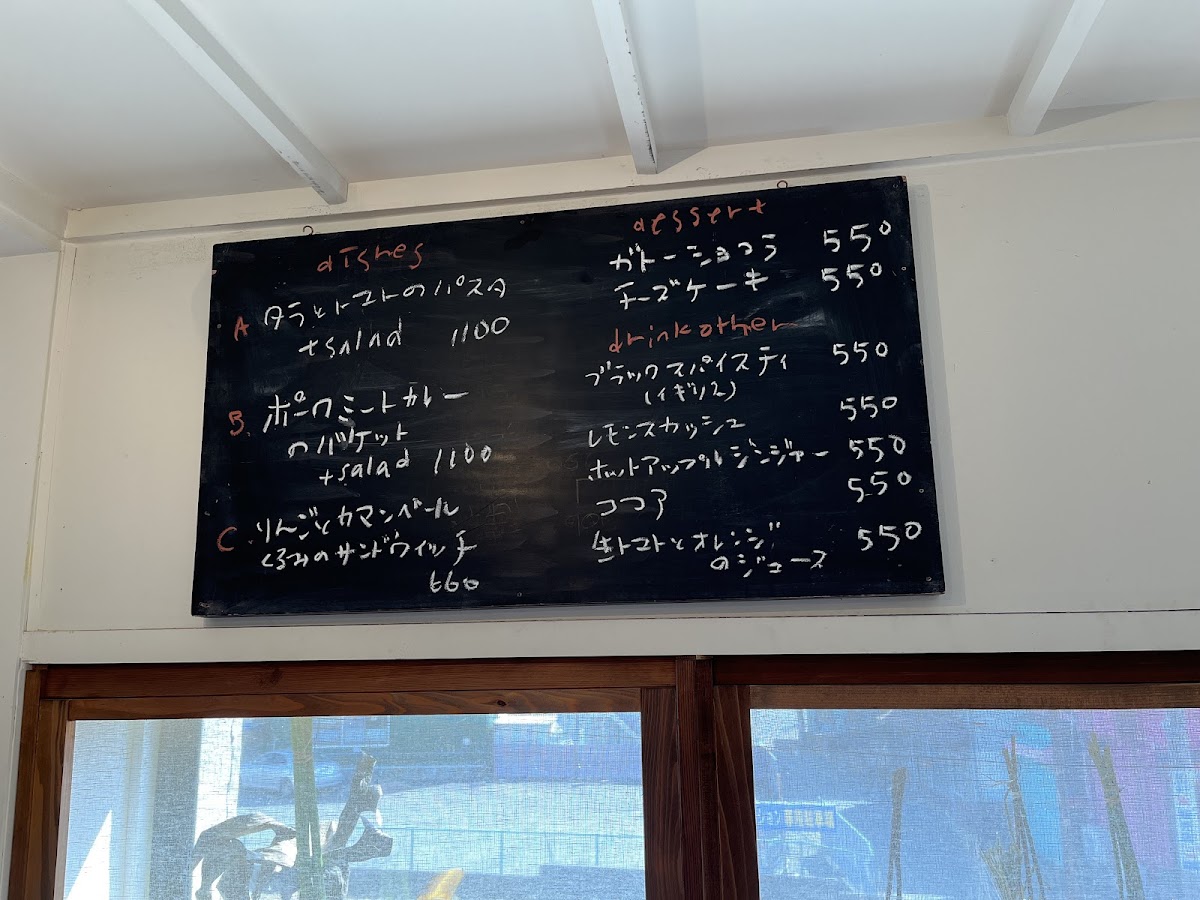 dishes
A タラとトマトのパスタ
+salad 1100
B. ポークミートカレー
のバケット
+salad 1100
C. りんごとカマンベール
くるみのサンドウィッチ
660
dessert
ガトーショコラ 550
チーズケーキ 550
drink other
ブラックスパイスティ 550
(イギリス)
レモンスカッシュ 550
ホットアップルジンジャー 550
ココア 550
生トマトとオレンジ 550
のジュース
専用駐車場